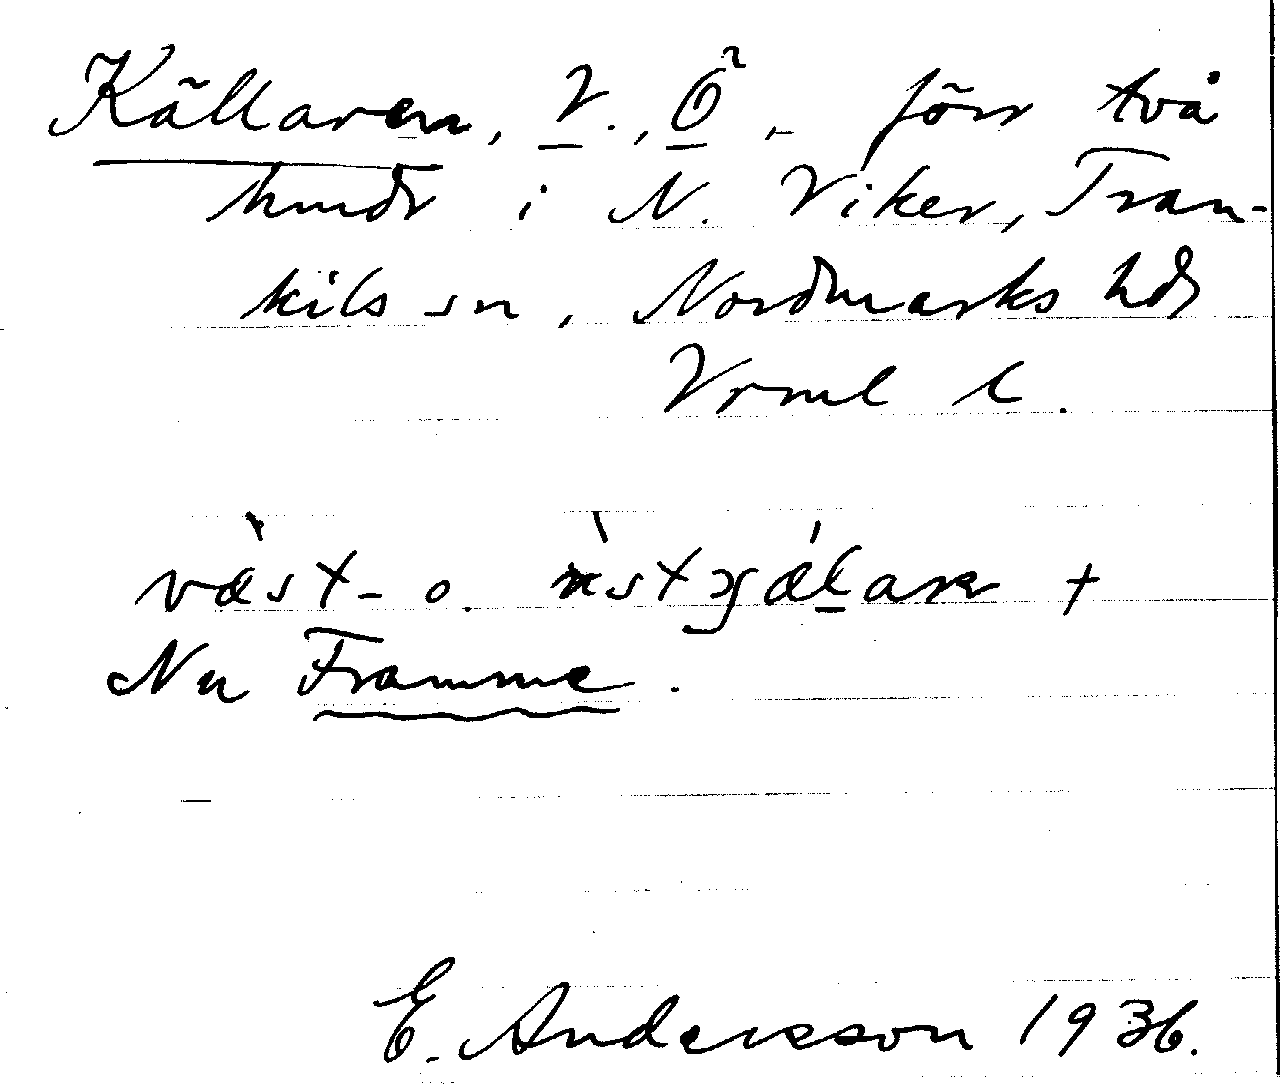 Källaren, V., Ö, förr två
hmdr i N. Viker, Tran-
kils sn, Nordmarks hd
Vrml l.
väst- o.
Nu Framme.
E. Andersson 1936.